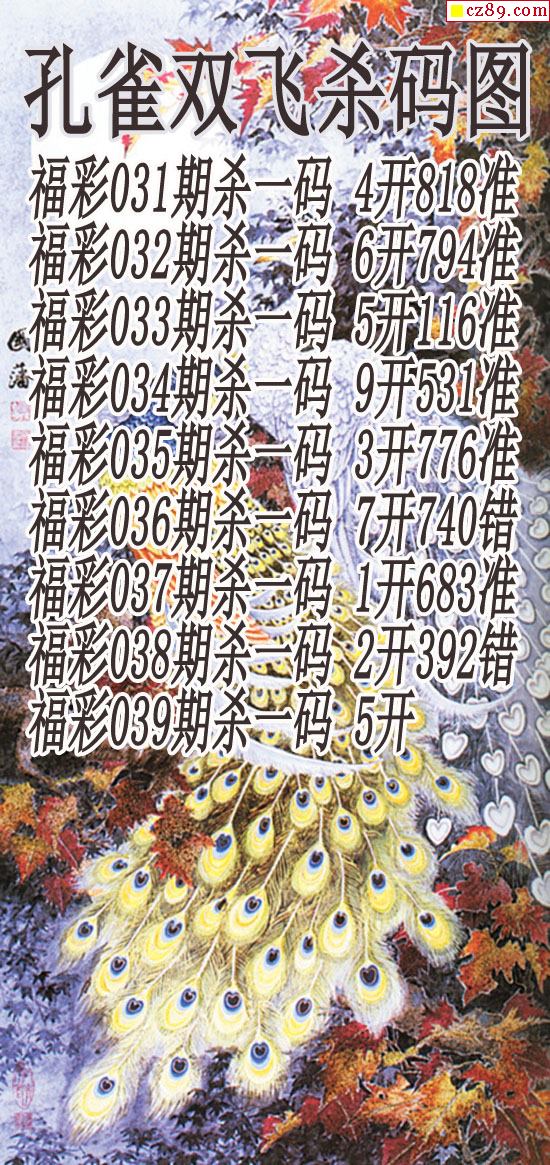 cz89.com
孔雀双飞杀码图
福彩031期杀一码 4开818准
福彩032期杀一码 6开794准
福彩033期杀一码 5开116准
福彩034期杀一码 9开531准
福彩035期杀一码 3开776准
福彩036期杀一码 7开740错
福彩037期杀一码 1开683准
福彩038期杀一码 2开392错
福彩039期杀一码 5开